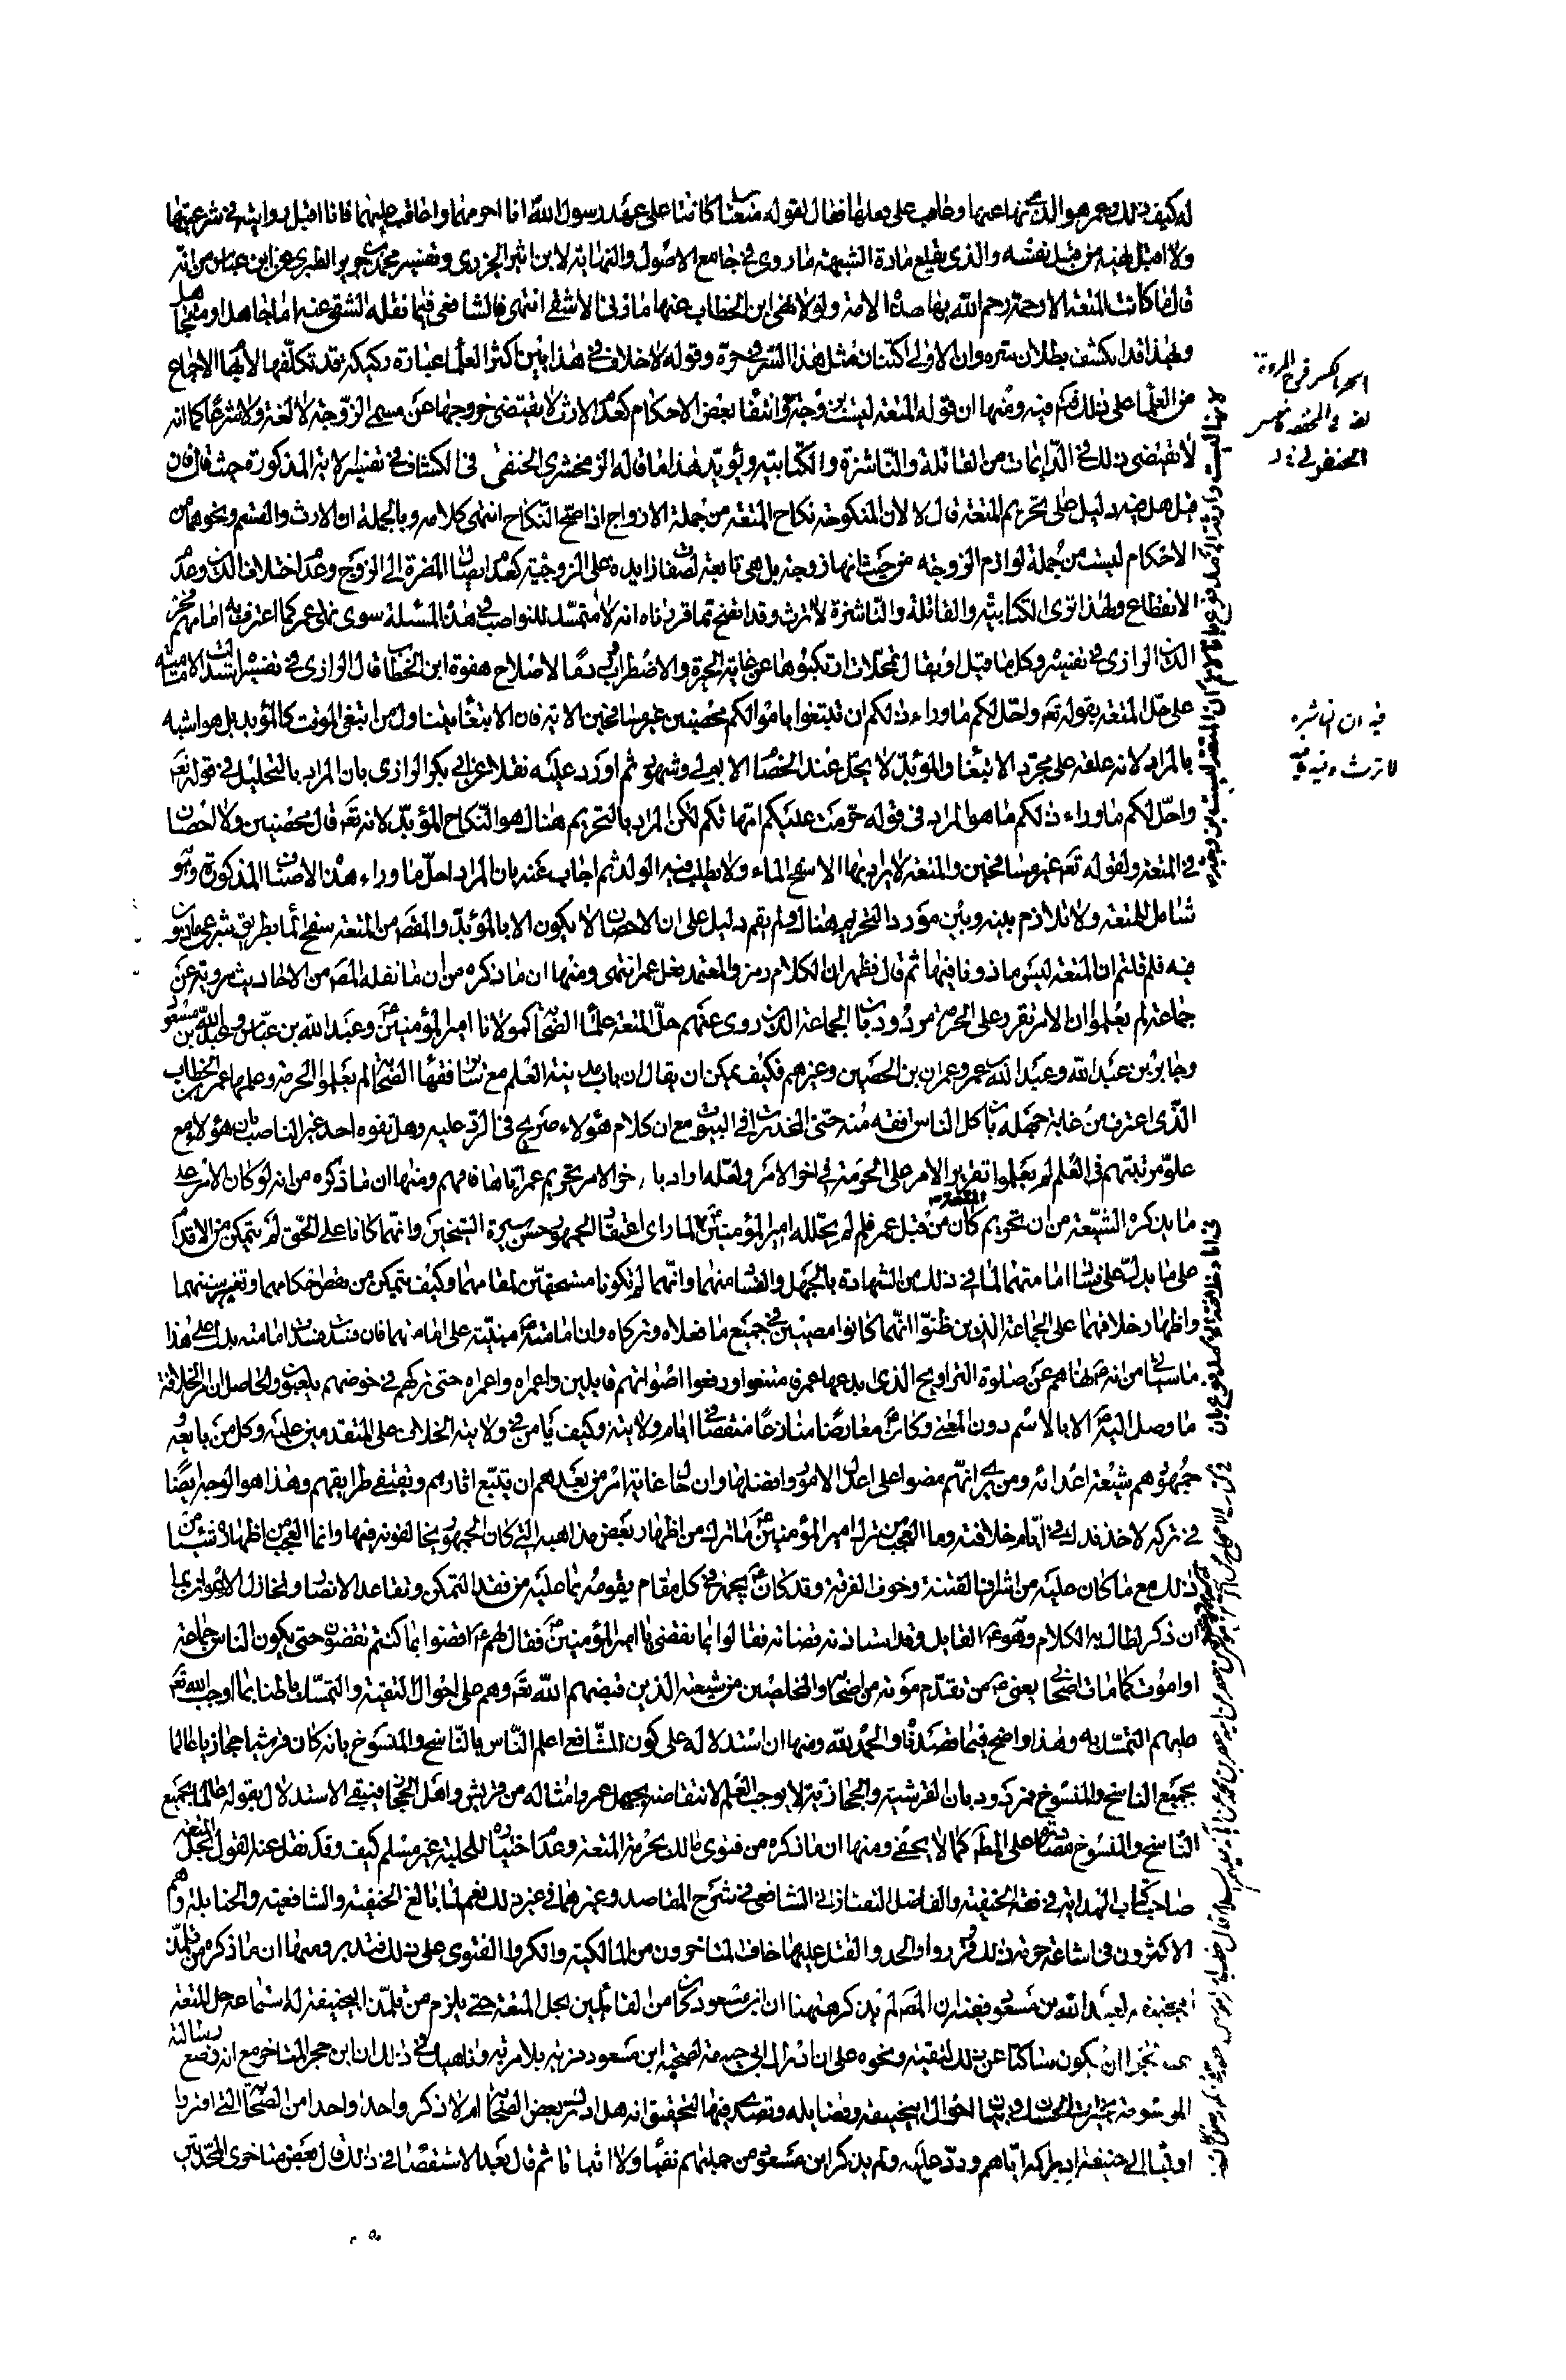 له كيف ذلك وعمر هو الذى نهى عنها وعاقب على فعلها فقال لقوله متعتان كانتا على عهد رسول الله انا احرمهما واعاقب عليهما فانا اقبل روايته فى شرعيتها
ولا اقبل نهيه من قبل نفسه والذى يقلع مادة الشبهة ما روى فى جامع الاصول والنهاية لابن اثير الجزرى وتفسير محمد بن جرير الطبرى عن ابن عباس من انه
قال ما كانت المتعة الا رحمة رحم الله بها هذه الامة ولولا نهى ابن الخطاب عنها ما زنى الا شقى انتهى فالشافعى فيما نقله الشقى عنه اما جاهل او متجاهل
وبهذا قد انكشف بطلان ستره وان الاولى اكتنان مثل هذا السر فى حره وقوله لا خلاف فى هذا بين اكثر العلما عبارة ركيكة قد تكلفها لايهام الاجماع
من العلما على ذلك فتم فيه ومنها ان قوله المتعة ليست بزوجة وانتفا بعض الاحكام كعدم الارث لا يقتضى خروجها عن مسمى الزوجة لا لغة ولا شرعا كما انه
لا يقتضى ذلك فى الدائمات من القاتلة والناشزة والكتابية ويؤيد هذا ما قاله الزمخشرى الحنفى فى الكشاف فى تفسير الاية المذكورة حيث قال فان
قيل هل فيه دليل على تحريم المتعة قال لا لان المنكوحة نكاح المتعة من جملة الازواج اذا صح النكاح انتهى كلامه وبالجملة ان الارث والقسم ونحوهما من
الاحكام ليست من جملة لوازم الزوجية من حيث انها زوجة بل هى تابعة لصفات زايدة على الزوجية كعدم ايصال المضرة الى الزوج وعدم اختلاف الدين وعدم
الانقطاع ولهذا ترى الكتابية والقاتلة والناشزة لا ترث وقد اتضح مما قررناه انه لا متمسك للنواصب فى هذه المسئلة سوى نهى عمر كما اعترف به امامهم فخر
الدين الرازى فى تفسيره وكل ما قيل او يقال تمحلات ارتكبوها عن غاية الحيرة والاضطراب فى دفعا لاصلاح هفوة ابن الخطاب قال الرازى فى تفسيره استدلت الامامية
على حل المتعة بقوله تعه واحل لكم ما وراء ذلكم ان تبتغوا باموالكم محصنين غير مسافحين الاية فان الابتغا يتناول من ابتغى الموقت كالمؤبد بل هو اشبه
بالمراد لانه علقه على مجرد الابتغا والمؤبد لا يحل عند الخصم الا بولى وشهود ثم اورد عليه نقلا عن ابى بكر الرازى بان المراد بالتحليل فى قوله تعه
واحل لكم ما وراء ذلكم ما هو المراد فى قوله حرمت عليكم امهاتكم لكن المراد بالتحريم هناك هو النكاح المؤبد لانه تعه قال محصنين ولا احصان
فى المتعة ولقوله تعه غير مسافحين والمتعة لا يراد بها الا سفح الماء ولا يطلب فيه الولد ثم اجاب عنه بان المراد احل ما وراء هذه الاصناف المذكورة وهو
شامل للمتعة ولا تلازم بينه وبين مورد التحريم هناك ولم يقم دليل على ان الاحصان لا يكون الا بالمؤبد والمقصد من المتعة سفح الما بطريق شرعى ماذون
فيه فلم قلتم ان المتعة ليس ماذونا فيها ثم قال فظهر ان الكلام رمز والمعتمد فعل عمر انتهى ومنها ان ما ذكره من ان ما نقله المصه من الاحاديث مروية عن
جماعة لم يعلموا ان الامر تقرر على الحرمة مردود بان الجماعة الذين روى عنهم حل المتعة علما الصحابة كمولانا امير المؤمنين وعبد الله بن عباس وعبد الله بن مسعود
وجابر بن عبد الله وعبد الله بن عمر وعمران بن الحصين وغيرهم فكيف يمكن ان يقال ان باب مدينة العلم مع سائر فقها الصحابة لم يعلموا الحرمة وعلمها عمر بن الخطاب
الذى اعترف من غاية جهله بان كل الناس افقه منه حتى المخدرات فى البيوت مع ان كلام هؤلاء صريح فى الرد عليه وهل تفوه احد غير الناصب بان هؤلاء مع
علو مرتبتهم فى العلم لم يعلموا تقرير الامر على الحرمة فى اخر الامر ولعله اراد باخر الامر تحريم عمر اياها فافهم ومنها ان ما ذكره من انه لو كان الامر على
ما يذكره الشيعة من ان تحريم المتعة كان من قبل عمر فلم لم يحلله امير المؤمنين لما راى اعتقاد الجمهور حسن سيرة الشيخين وانهما كانا على الحق لم يتمكن من الاقدام
على ما يدل على فساد امامتهما لما فى ذلك من الشهادة بالجهل والفساد منهما وانهما لم يكونا مستحقين لمقامهما وكيف يتمكن من نقض احكامهما وتغيير سنتهما
واظهار خلافهما على الجماعة الذين ظنوا انهما كانوا مصيبين فى جميع ما فعلاه وتركاه وان امامته مبنية على امامتهما فان فسدت فسدت امامته يدل على هذا
ما سياتى من انه نهاهم عن صلوة التراويح الذى ابدعها عمر فامتنعوا ورفعوا اصواتهم قايلين واعمراه واعمراه حتى تركهم فى خوضهم يلعبون والحاصل ان امر الخلافة
ما وصل اليه الا بالاسم دون المعنى وكان معارضا منازعا منغصا ايام ولايته وكيف يامن فى ولايته الخلاف على المتقدمين عليه وكل من بايعه
جمهورهم شيعة اعدائه ومن يرى انهم مضوا على اعدل الامور وافضلها وان غاية امر من بعدهم ان يتبع اثارهم ويقتفى طرايقهم وهذا هو الوجه ايضا
فى تركه لاخذ فدك فى ايام خلافته وما العجب من ترك امير المؤمنين ما ترك من اظهار بعض مذاهبه التى كان الجمهور يخالفونه فيها وانما العجب من اظهاره شيئا من
ذلك مع ما كان عليه من اشراف الفتنة وخوف الفرقة وقد كان يجهر فى كل مقام يقومه بما عليه من فقد التمكن وتقاعد الانصار وتخاذل الاعوان بما
ان ذكر لطال به الكلام وهو القايل وقد استاذنه قضاته فقالوا بما نقضى يا امير المؤمنين فقال لهم اقضوا بما كنتم تقضون حتى يكون الناس جماعة
او اموت كما مات اصحابى يعنى من تقدم موته من اصحابه والمخلصين من شيعته الذين قبضهم الله تعه وهم على احوال التقية والتمسك باطنا بما اوجب الله تعه
عليهم التمسك به وهذا واضح فيما قصدناه والحمد لله ومنها ان استدلاله على كون الشافعى اعلم الناس بالناسخ والمنسوخ بانه كان قرشيا حجازيا عالما
بجميع الناسخ والمنسوخ مردود بان القرشية والحجازية لا يوجب العلم لانتقاضه بجهل عمر وامثاله من قريش واهل الحجاز فيبقى الاستدلال بقوله عالما بجميع
الناسخ والمنسوخ مصادرة على المطلوب كما لا يخفى ومنها ان ما ذكره من فتوى مالك بحرمة المتعة وعدم اختياره للحلية غير مسلم كيف وقد نقل عنه القول بحل المتعة
صاحب كتاب الهداية فى فقه الحنفية والفاضل التفتازانى الشافعى فى شرح المقاصد وغيرهما فى غير ذلك نعم لما بالغ الحنفية والشافعية والحنابلة وهم
الاكثرون فى اشاعة حرمة ذلك وقرروا الحد والقتل عليها خاف المتاخرون من المالكية وانكروا الفتوى على ذلك فتدبر ومنها ان ما ذكره من تلمذ
ابى حنيفة لعبد الله بن مسعود ففيه ان المصه لم يذكر ههنا ان ابن مسعود كان من القائلين بحل المتعة حتى يلزم من تلمذ ابى حنيفة له استماعه حل المتعة
ان يكون ساكتا عن ذلك لتقية ونحوه على ان ادراك ابى حنيفة لصحبة ابن مسعود مزية بلا مرية وناهيك فى ذلك ان ابن حجر المتاخر مع انه وضع رسالة
الموسومة بخيرات الحسان فى بيان احوال ابى حنيفة وفضايله وتصدى فيها لتحقيق انه هل ادرك بعض الصحابة ام لا ذكر واحدا واحدا من الصحابة التى افتروا
اولياء ابى حنيفة ادراكه اياهم ورد عليه ولم يذكر ابن مسعود من جملتهم نفيا ولا اثباتا ثم قال بعد الاستقصا فى ذلك قال بعض متاخرى المحدثين
فيه ان الناشزه
لا ترث